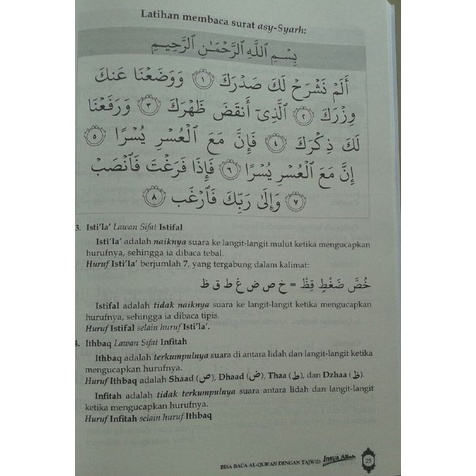 Latihan membaca surat asy-Syarh:
بِسْمِ ٱللَّهِ ٱلرَّحْمَـٰنِ ٱلرَّحِيمِ
أَلَمْ نَشْرَحْ لَكَ صَدْرَكَ ﴿١﴾ وَوَضَعْنَا عَنكَ
وِزْرَكَ ﴿٢﴾ ٱلَّذِىٓ أَنقَضَ ظَهْرَكَ ﴿٣﴾ وَرَفَعْنَا
لَكَ ذِكْرَكَ ﴿٤﴾ فَإِنَّ مَعَ ٱلْعُسْرِ يُسْرًا ﴿٥﴾
إِنَّ مَعَ ٱلْعُسْرِ يُسْرًا ﴿٦﴾ فَإِذَا فَرَغْتَ فَٱنصَبْ
﴿٧﴾ وَإِلَىٰ رَبِّكَ فَٱرْغَب ﴿٨﴾
3. Isti'la' Lawan Sifat Istifal
Isti'la' adalah naiknya suara ke langit-langit mulut ketika mengucapkan
hurufnya, sehingga ia dibaca tebal.
Huruf Isti'la' berjumlah 7, yang tergabung dalam kalimat:
خُصَّ ضَغْطٍ قِظْ = خ ص ض غ ط ق ظ
Istifal adalah tidak naiknya suara ke langit-langit ketika mengucapkan
hurufnya, sehingga ia dibaca tipis.
Huruf Istifal selain huruf Isti'la'.
4. Ithbaq Lawan Sifat Infitah
Ithbaq adalah terkumpulnya suara di antara lidah dan langit-langit ketika
mengucapkan hurufnya.
Huruf Ithbaq adalah Shaad (ص), Dhaad (ض), Thaa (ط), dan Dzhaa (ظ).
Infitah adalah tidak terkumpulnya suara antara lidah dan langit-langit
ketika mengucapkan hurufnya.
Huruf Infitah selain huruf Ithbaq
BISA BACA AL-QUR'AN DENGAN TAJWID Insya Allah
25